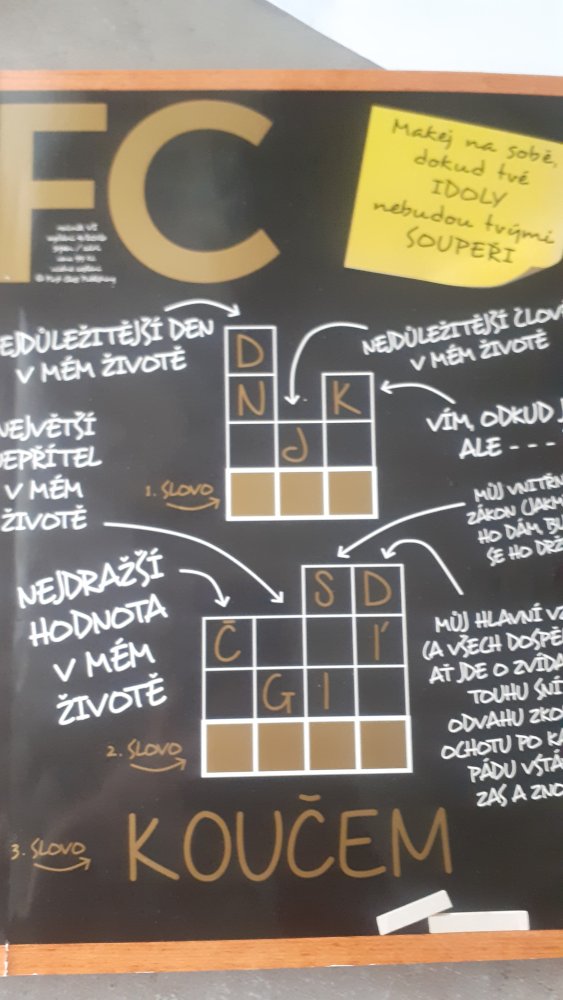 FC
Makej na sobě,
dokud tvé
IDOLY
nebudou tvými
SOUPEŘI
EJDŮLEŽITĚJŠÍ DEN
V MÉM ŽIVOTĚ
NEJDŮLEŽITĚJŠÍ ČLOV
V MÉM ŽIVOTĚ
D
N K
J
VÍM, ODKUD J
ALE - - -
NEJVĚTŠÍ
NEPŘÍTEL
V MÉM
ŽIVOTĚ
1. SLOVO
MŮJ VNITŘN
ZÁKON (JAKM
HO DÁM, BU
SE HO DRŽ
NEJDRAŽŠÍ
HODNOTA
V MÉM
ŽIVOTĚ
S D
Č Í
G I
MŮJ HLAVNÍ VZ
(A VŠECH DOSPĚ
AŤ JDE O ZVÍDA
TOUHU SNÍ
ODVAHU ZKO
OCHOTU PO KA
PÁDU VSTÁ
ZAS A ZNO
2. SLOVO
3. SLOVO
KOUČEM